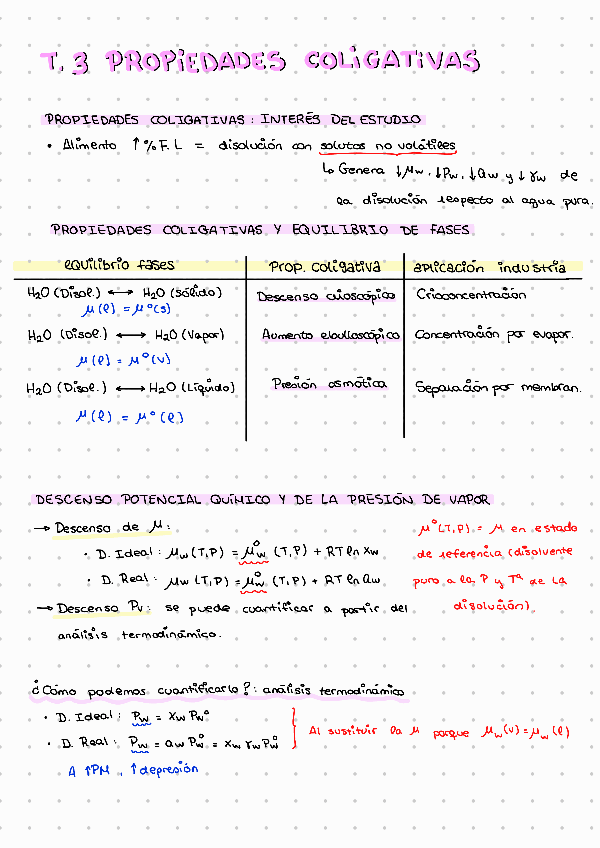 T. 3 PROPIEDADES COLIGATIVAS
PROPIEDADES COLIGATIVAS : INTERÉS DEL ESTUDIO
• Alimento ↑ % F. L = disolución con solutos no volátiles
↳ Genera ↓μw, ↓Pw, ↓aw y ↓γw de
la disolución respecto al agua pura.
PROPIEDADES COLIGATIVAS Y EQUILIBRIO DE FASES
equilibrio fases | Prop. coligativa | aplicación industria
H₂O (Disol.) ⟷ H₂O (sólido) | Descenso crioscópico | Crioconcentración
μ(l) = μ°(s)
H₂O (Disol.) ⟷ H₂O (Vapor) | Aumento ebulloscópico | Concentración por evapor.
μ(l) = μ°(v)
H₂O (Disol.) ⟷ H₂O (Líquido) | Presión osmótica | Separación por membran.
μ(l) = μ°(l)
DESCENSO POTENCIAL QUÍMICO Y DE LA PRESIÓN DE VAPOR
→ Descenso de μ:
• D. Ideal : μw (T,P) = μ°w (T,P) + RT ln xw
• D. Real : μw (T,P) = μ°w (T,P) + RT ln aw
→ Descenso Pv : se puede cuantificar a partir del
análisis termodinámico.
μ°(T,P) = μ en estado
de referencia (disolvente
puro a la P y Tª de la
disolución)
¿Cómo podemos cuantificarlo? : análisis termodinámico
• D. Ideal : Pw = xw Pw°
• D. Real : Pw = aw P°w = xw γw P°w
Al sustituir la μ porque μw(v) = μw(l)
A ↑PM , ↑depresión